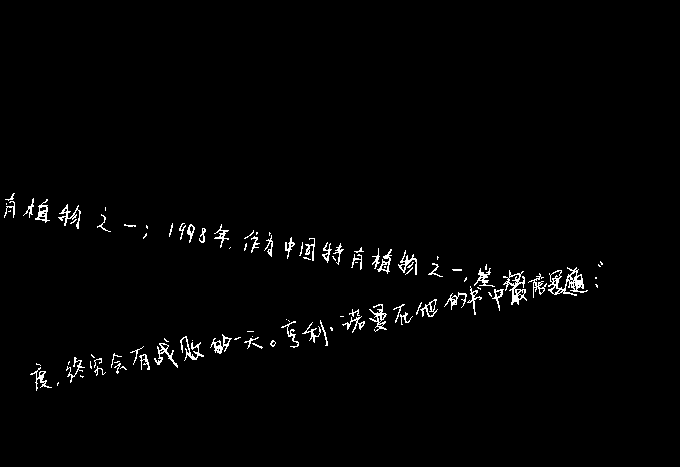 有植物之一；1998年，作为中国特有植物之一，
度，终究会有战败的一天。亨利·诺曼在他的书中